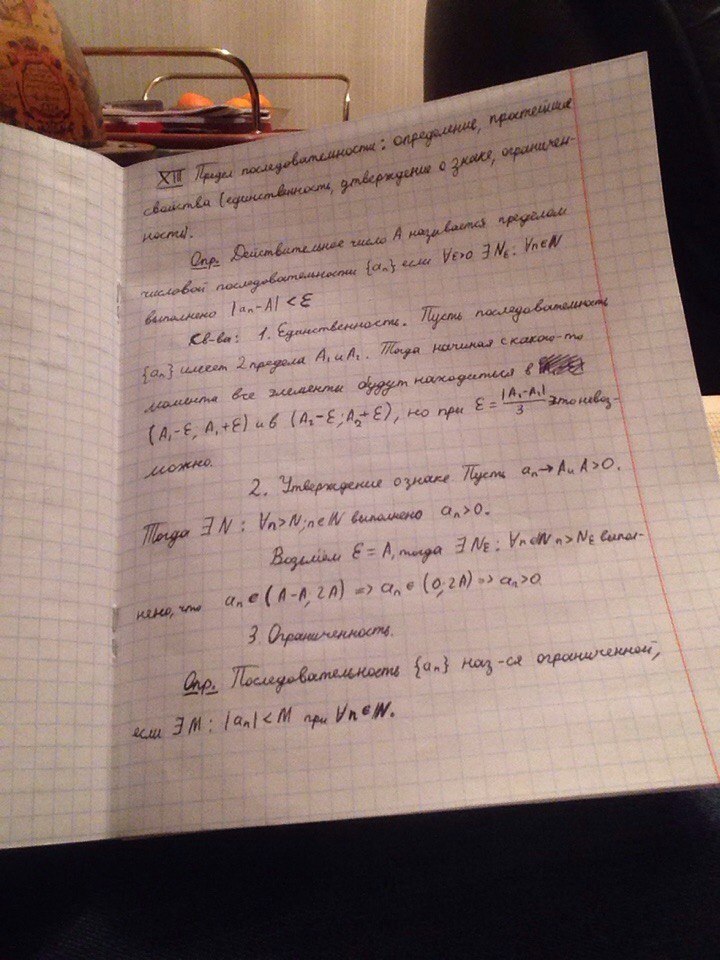 XIII Предел последовательности: определение, простейшие
свойства (единственность, утверждение о знаке, ограничен-
ность).
Опр. Действительное число A называется пределом
числовой последовательности {aₙ} если ∀ε>0 ∃Nε: ∀n∈N
выполнено |aₙ-A| < ε
Св-ва: 1. Единственность. Пусть последовательность
{aₙ} имеет 2 предела A₁ и A₂. Тогда начиная с какого-то
момента все элементы будут находиться в
(A₁-ε, A₁+ε) и в (A₂-ε; A₂+ε), но при ε = |A₁-A₁|/3 это невоз-
можно.
2. Утверждение о знаке Пусть aₙ→A и A>0.
Тогда ∃N: ∀n>N; n∈N выполнено aₙ>0.
Возьмём ε=A, тогда ∃Nε: ∀n∈N n>Nε выпол-
нено, что aₙ∈(A-A, 2A) => aₙ∈(0; 2A) => aₙ>0
3. Ограниченность.
Опр. Последовательность {aₙ} наз-ся ограниченной,
если ∃M: |aₙ|<M при ∀n∈N.